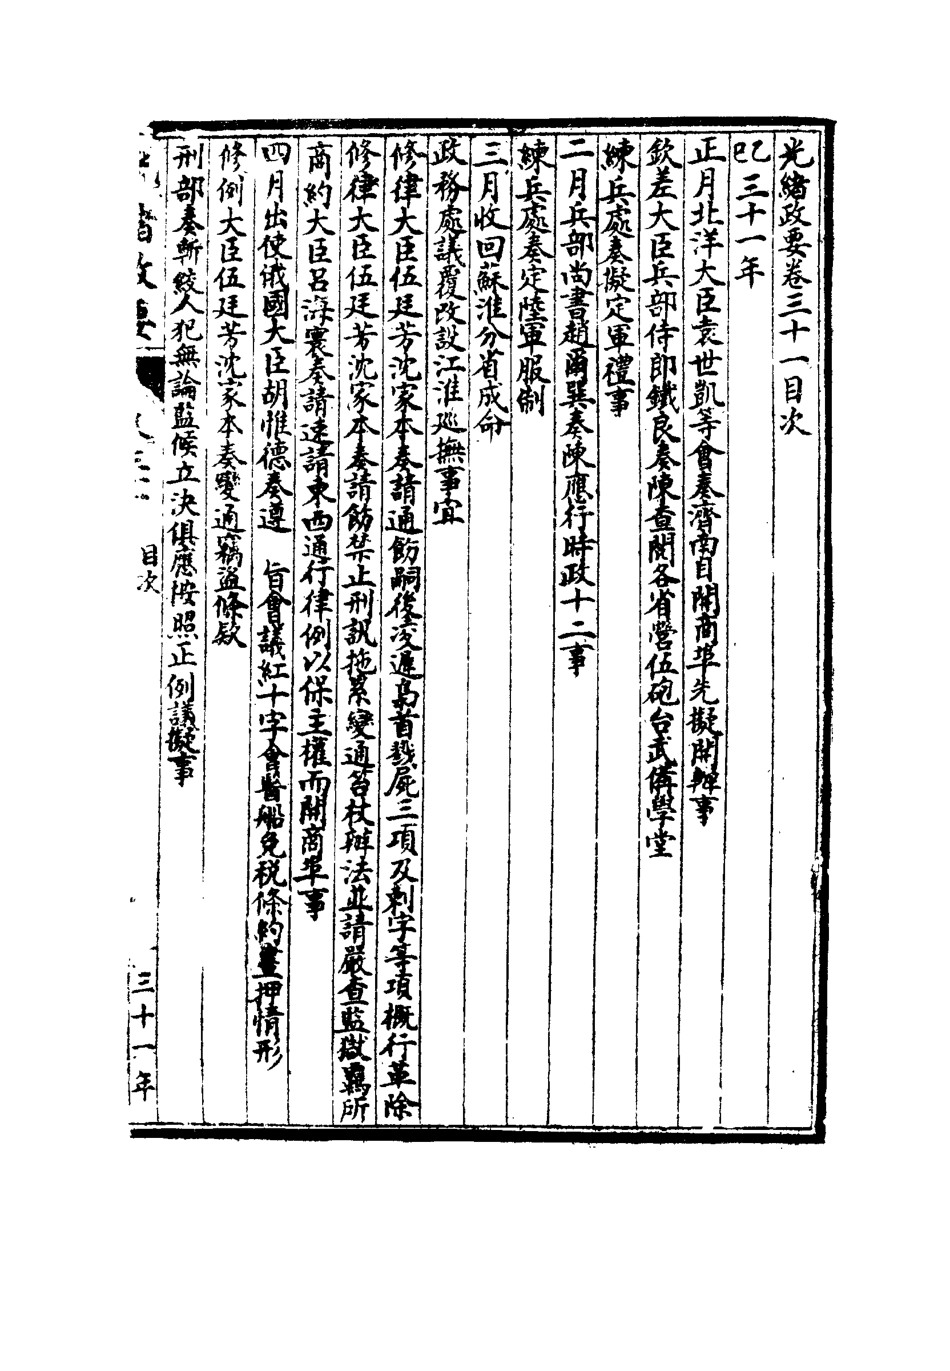 光緒政要卷三十一目次
乙巳三十一年
正月北洋大臣袁世凱等會奏濟南自開商埠先擬開辦事
欽差大臣兵部侍郎鐵良奏陳查閱各省營伍砲台武備學堂
練兵處奏擬定軍禮事
二月兵部尚書趙爾巽奏陳應行時政十二事
練兵處奏定陸軍服制
三月收回蘇淮分省成命
政務處議覆改設江淮廵撫事宜
修律大臣伍廷芳沈家本奏請通飭嗣後凌遲梟首戮屍三項及刺字等項概行革除
修律大臣伍廷芳沈家本奏請飭禁止刑訊拖累變通笞杖辦法並請嚴查監獄羈所
商約大臣呂海寰奏請速請東西通行律例以保主權而開商埠事
四月出使俄國大臣胡惟德奏遵 旨會議紅十字會醫船免税條約畫押情形
修例大臣伍廷芳沈家本奏變通竊盜條欵
刑部奏斬絞人犯無論監候立決俱應按照正例議擬事
目次
三十一年